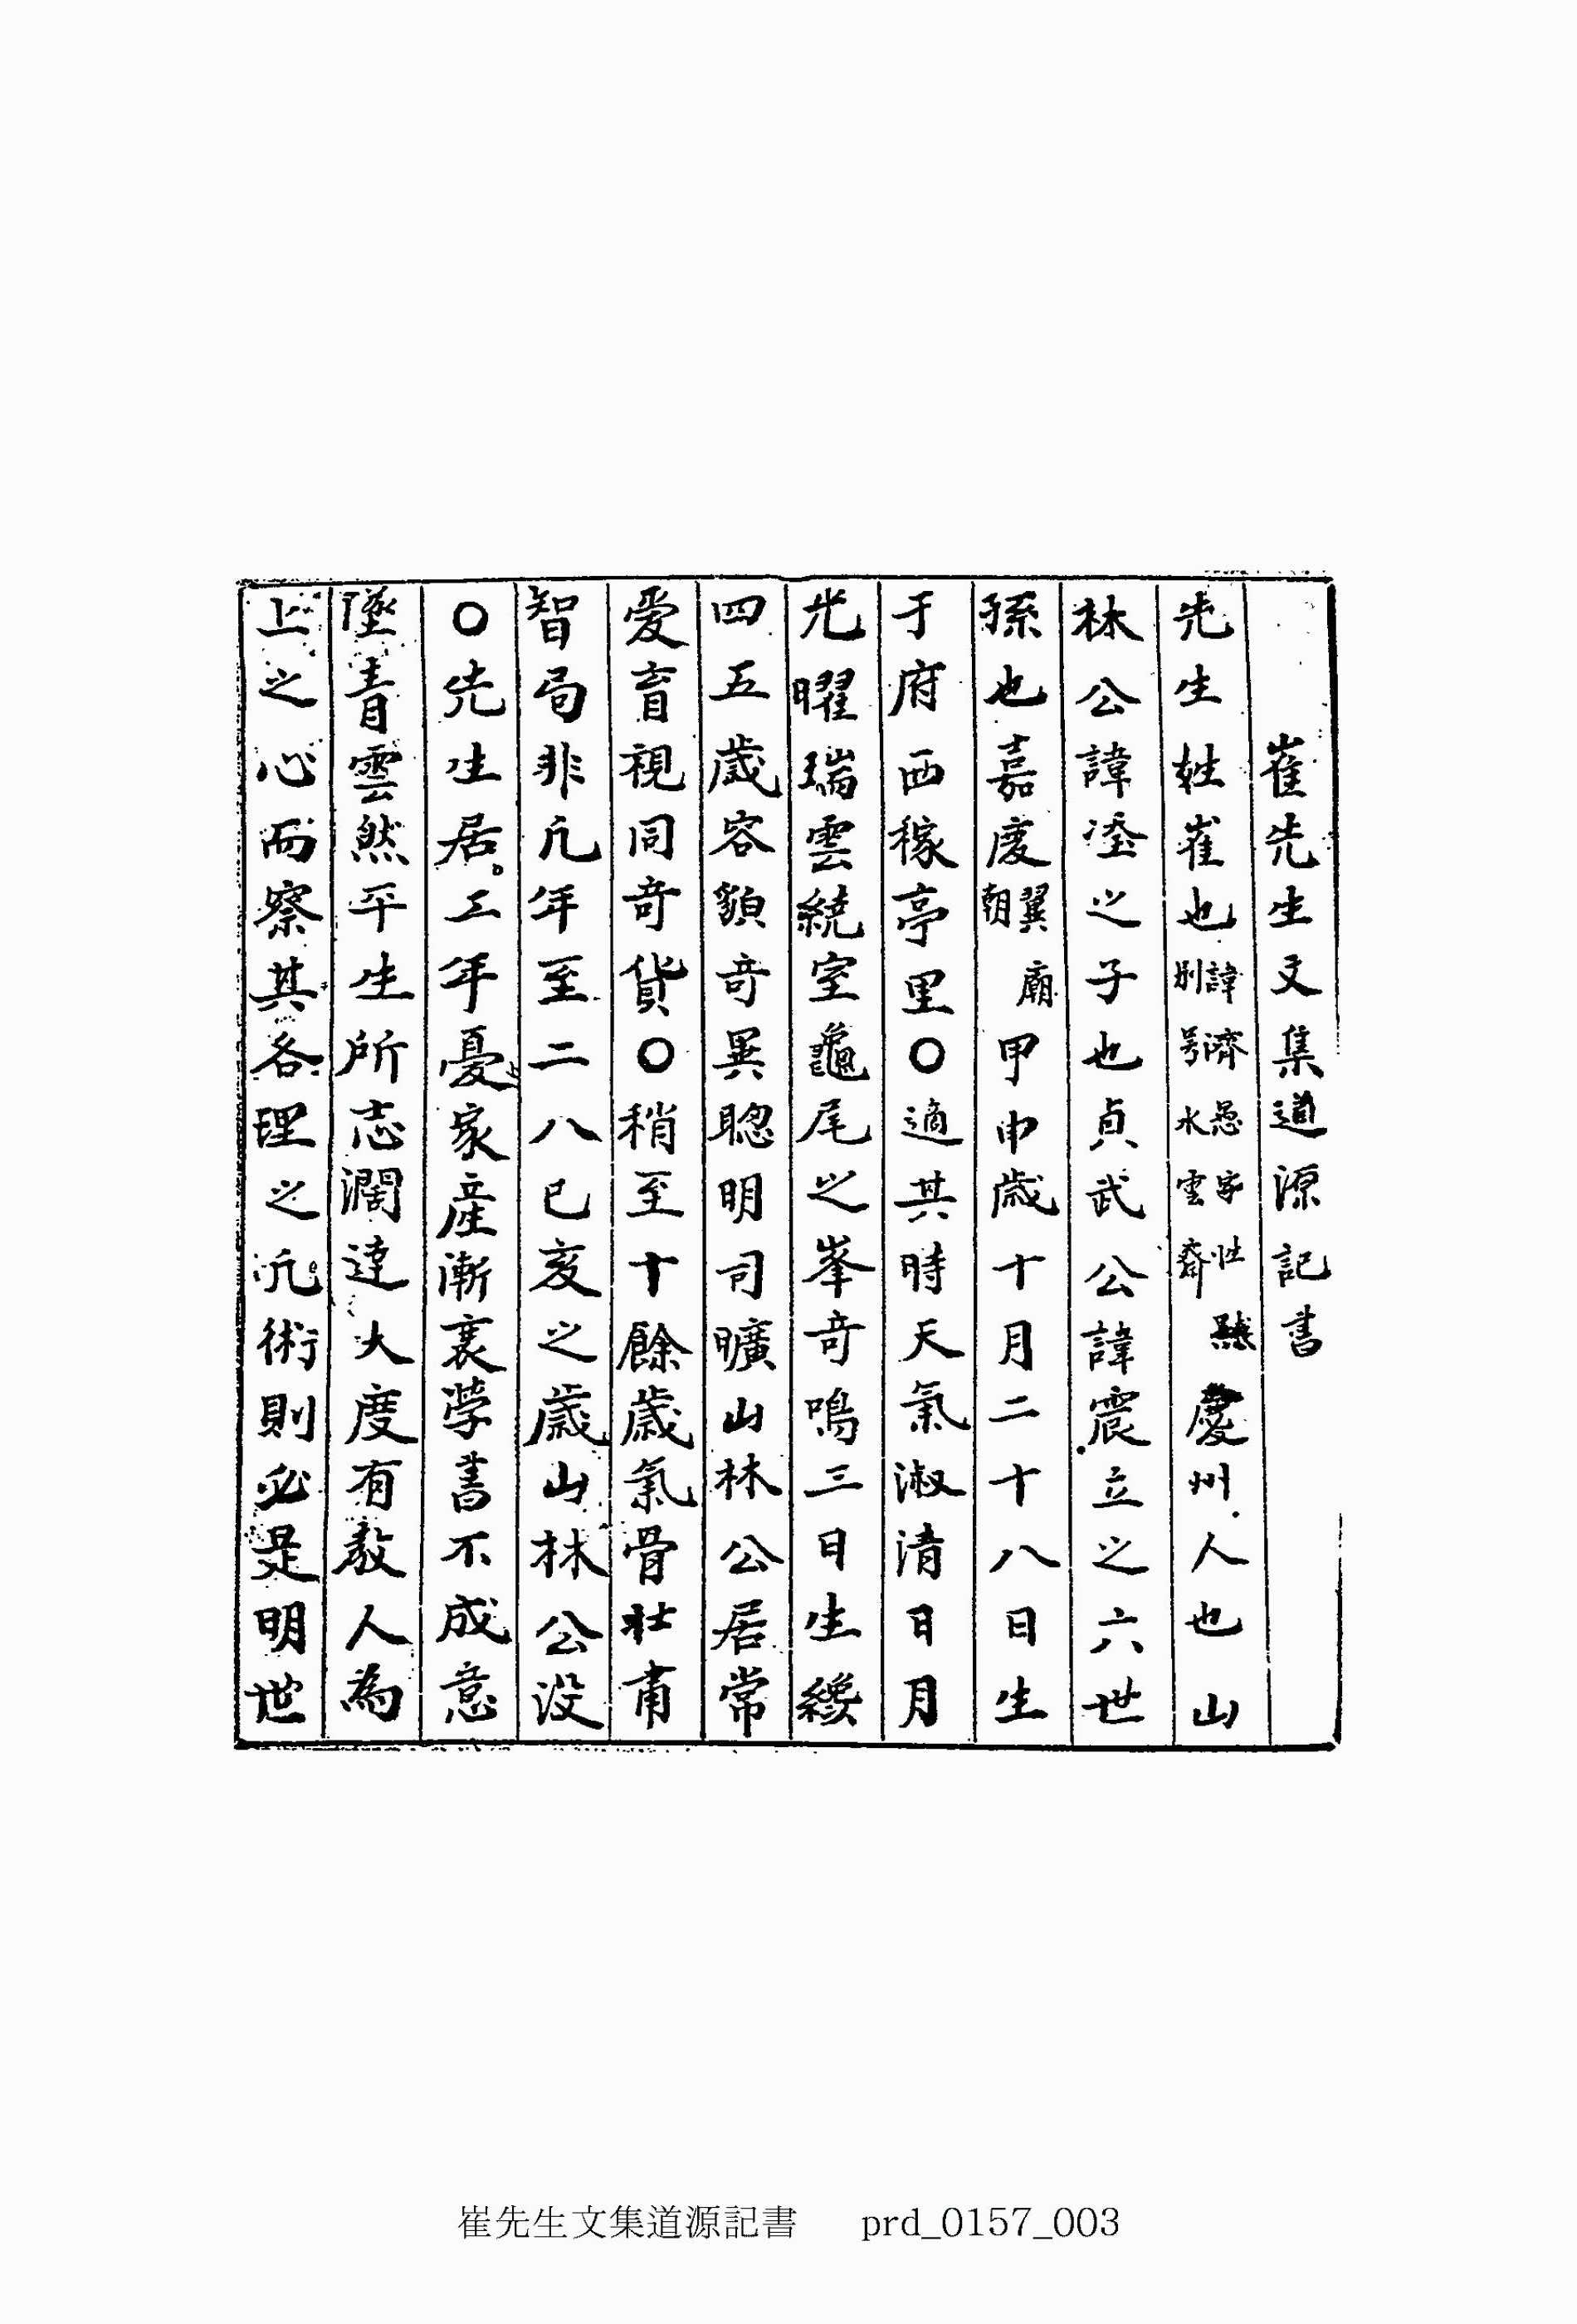 崔先生文集道源記書
先生姓崔也諱濟愚字性默別号水雲齋慶州人也山
林公諱𡋛之子也貞武公諱震立之六世
孫也嘉慶翼廟朝甲申歲十月二十八日生
于府西稼亭里○適其時天氣淑清日月
光曜瑞雲繞室龜尾之峯奇鳴三日生纔
四五歲容貌奇異聰明司曠山林公居常
愛育視同奇貨○稍至十餘歲氣骨壯肅
智局非凡年至二八己亥之歲山林公沒
○先生居三年憂家產漸衰學書不成意
墜青雲然平生所志濶達大度有敎人為
上之心而察其各理之凡術則必是明世
崔先生文集道源記書 prd_0157_003